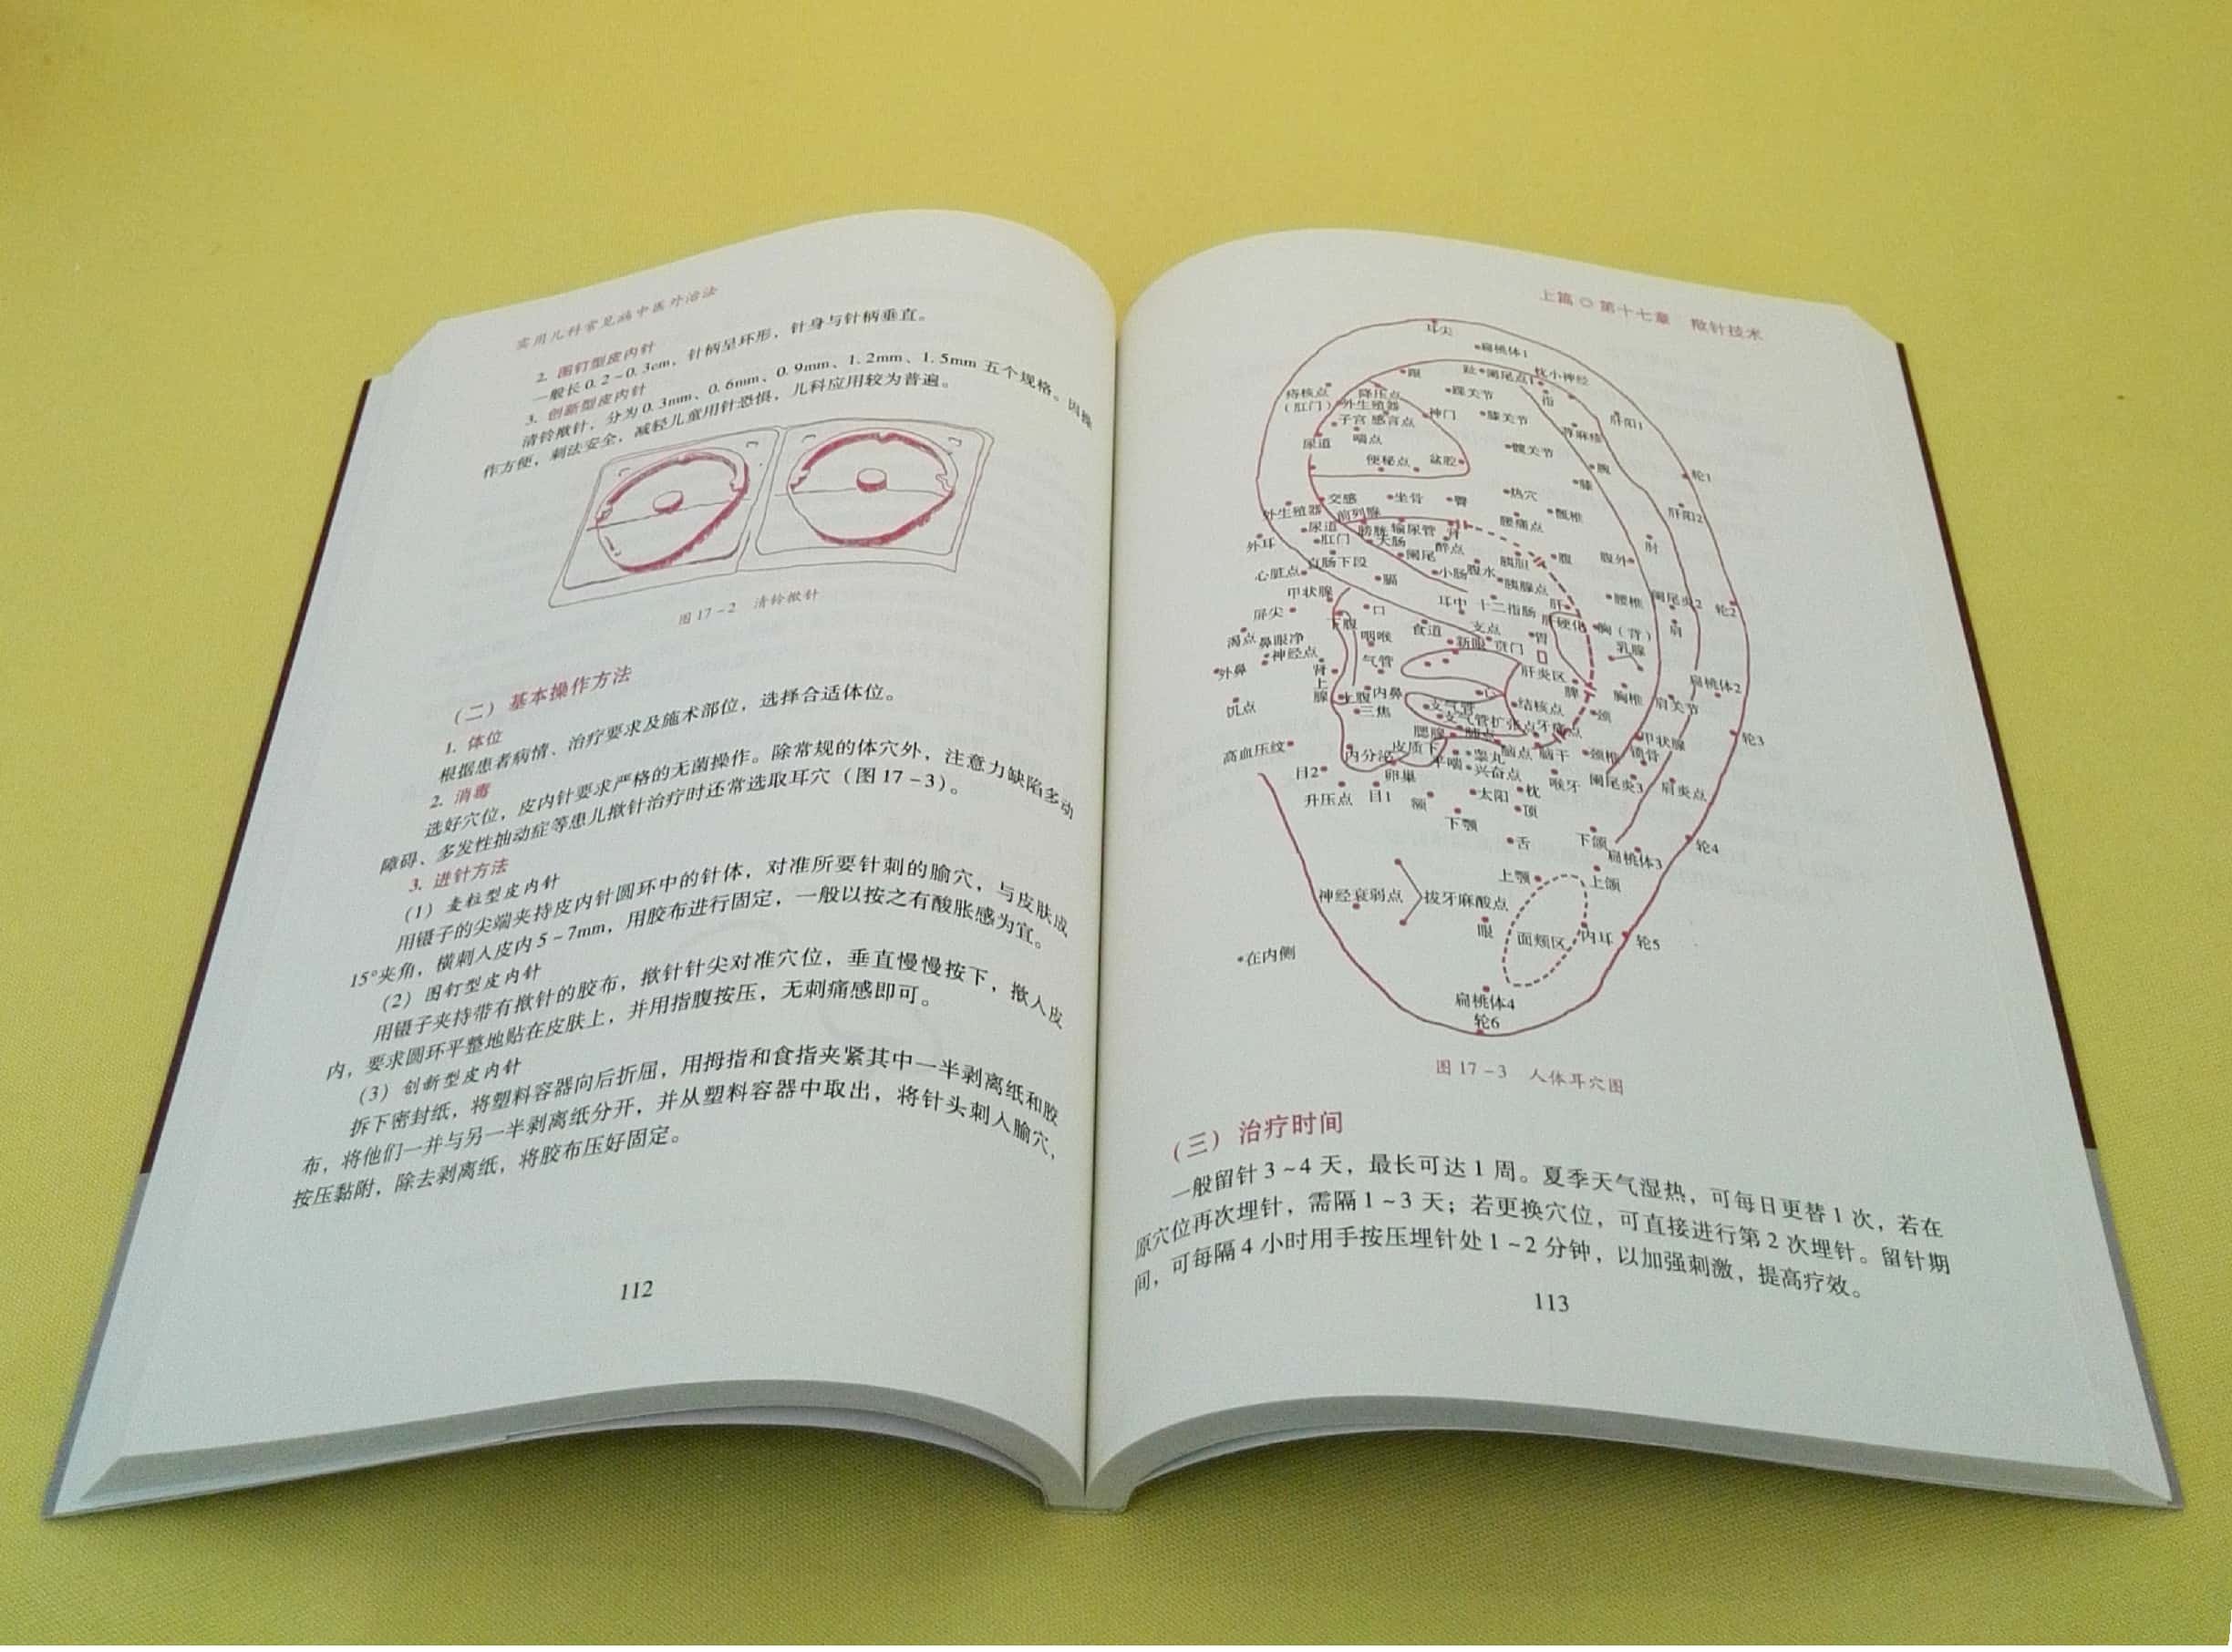 实用儿科常见病中医外治法
2. 图钉型皮内针
一般长 0.2~0.3cm，针柄呈环形，针身与针柄垂直。
3. 创新型皮内针
清铃揿针，分为 0.3mm、0.6mm、0.9mm、1.2mm、1.5mm 五个规格。因操
作方便，刺法安全，减轻儿童用针恐惧，儿科应用较为普遍。
图 17-2 清铃揿针
（二）基本操作方法
1. 体位
根据患者病情、治疗要求及施术部位，选择合适体位。
2. 消毒
选好穴位，皮内针要求严格的无菌操作。除常规的体穴外，注意力缺陷多动
障碍、多发性抽动症等患儿揿针治疗时还常选取耳穴（图 17-3）。
3. 进针方法
（1）麦粒型皮内针
用镊子的尖端夹持皮内针圆环中的针体，对准所要针刺的腧穴，与皮肤成
15°夹角，横刺入皮内 5~7mm，用胶布进行固定，一般以按之有酸胀感为宜。
（2）图钉型皮内针
用镊子夹持带有揿针的胶布，揿针针尖对准穴位，垂直慢慢按下，揿入皮
内，要求圆环平整地贴在皮肤上，并用指腹按压，无刺痛感即可。
（3）创新型皮内针
拆下密封纸，将塑料容器向后折屈，用拇指和食指夹紧其中一半剥离纸和胶
布，将他们一并与另一半剥离纸分开，并从塑料容器中取出，将针头刺入腧穴，
按压黏附，除去剥离纸，将胶布压好固定。
112
上篇○第十七章 揿针技术
耳尖
扁桃体1
跟
趾 阑尾点1 枕小神经
痔核点
（肛门）
降压点
外生殖器
踝关节
指
子宫 感言点
神门
膝关节
荨麻疹
肝阳1
尿道
喘点
便秘点
盆腔
髋关节
腕
轮1
膝
交感
坐骨
臀
热穴
外生殖器
前列腺
腰痛点
骶椎
肝阳2
尿道
膀胱
输尿管
肾
外耳
肛门
大肠
醉点
肘
直肠下段
阑尾
胰胆
腹
腹外
心脏点
膈
小肠
腹水
胰腺点
甲状腺
耳中
十二指肠
肝
腰椎
阑尾炎2
轮2
屏尖
口
肝硬化
胸（背）
肩
渴点
鼻眼净
下腹
咽喉
食道
支点
胃
神经点
新眼
贲门
乳腺
外鼻
肾上腺
气管
肝炎区
脾
扁桃体2
饥点
上腹
内鼻
结核点
胸椎
肩关节
三焦
支气管
颈
支气管扩张点
牙痛点
轮3
高血压纹
腮腺
肺点
甲状腺
内分泌
皮质下
睾丸
脑点
脑干
颈椎
锁骨
目2
卵巢
平喘
兴奋点
喉牙
阑尾炎3
肩炎点
升压点
目1
额
太阳
枕
顶
下颚
舌
下颌
轮4
扁桃体3
上颚
上颌
神经衰弱点
拔牙麻酸点
眼
面颊区
内耳
轮5
在内侧
扁桃体4
轮6
图 17-3 人体耳穴图
（三）治疗时间
一般留针 3~4 天，最长可达 1 周。夏季天气湿热，可每日更替 1 次，若在
原穴位再次埋针，需隔 1~3 天；若更换穴位，可直接进行第 2 次埋针。留针期
间，可每隔 4 小时用手按压埋针处 1~2 分钟，以加强刺激，提高疗效。
113